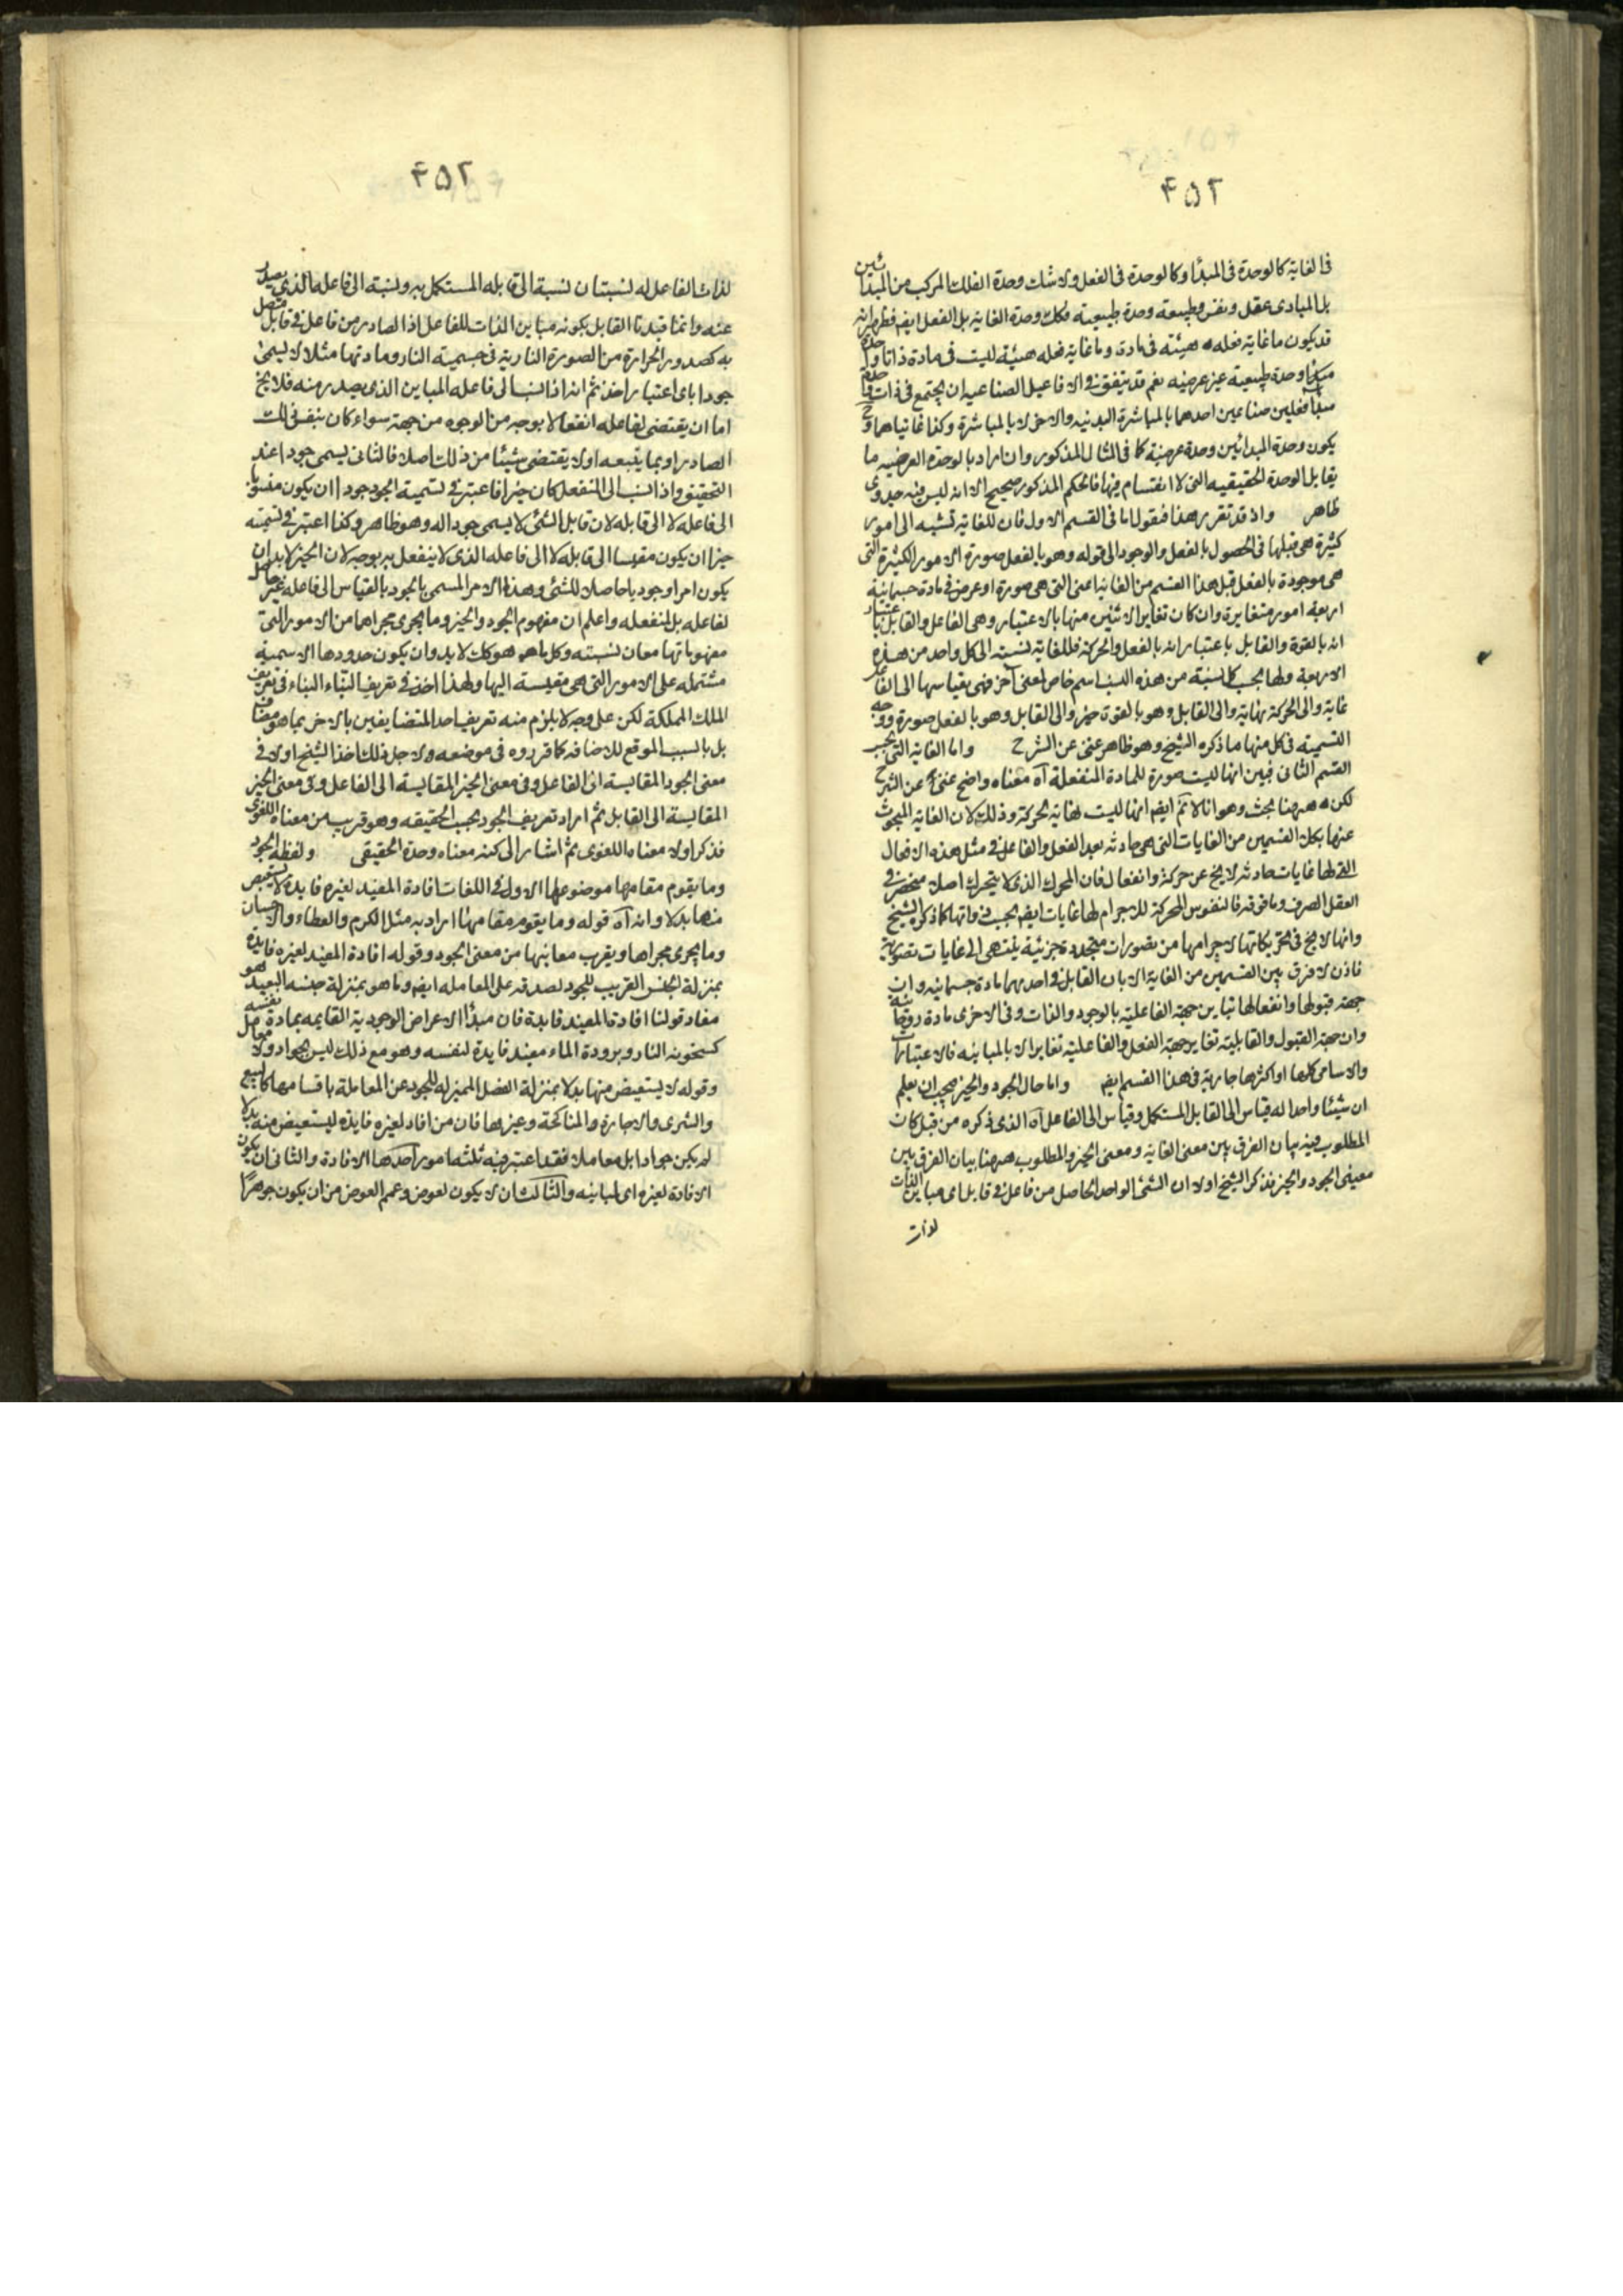 ۴۵۲
فى الغاية كالوحدة فى المبدأ او كالوحدة فى الفعل ولا شك وحدة الفلك المركب من المبدائين
بل المبادى عقل ونفس وطبيعة وحدة طبيعية فكك وحدة الغاية بل الفعل ايضا فظهر انه
قد يكون ما غاية فعله هيئة فى مادة وما غاية فعله هيئة ليست فى مادة ذاتا واحدة
مبدأ وحدة طبيعية غير عرضية نعم قد يتفق فى الافاعيل الصناعية ان يجتمع فى ذات واحدة
مبدأ فعلين صناعيين احدهما بالمباشرة البدنية والاخر لا بالمباشرة وكذا غاتياهما وح
يكون وحدة المبدائين وحدة عرضية كما فى المثال المذكور وان اراد بالوحدة العرضية ما
يقابل الوحدة الحقيقيه التى لا انقسام فيها فالحكم المذكور صحيح الا انه ليس فيه جدوى
ظاهر واذ قد تقرر هذا فنقول اما فى القسم الاول فان للغاية نسبه الى امور
كثيرة هى قبلها فى الحصول بالفعل والوجود الى قوله وهو بالفعل صورة الامور الكثيرة التى
هى موجودة بالفعل قبل هذا القسم من الغاية اعنى التى هى صورة او عرض فى مادة جسمانية
اربعة امور متغايرة وان كان تغاير الاثنين منها بالاعتبار وهى الفاعل والقابل باعتبار
انه بالقوة والقابل باعتبار انه بالفعل والحركة فللغاية نسبته الى كل واحد من هذه
الاربعة ولها بحسب كل نسبة من هذه النسب اسم خاص لمعنى آخر فهى بقياسها الى الفاعل
غاية والى الحركة نهاية والى القابل وهو بالقوة خير والى القابل وهو بالفعل صورة ووجه
التسمية فى كل منها ما ذكره الشيخ وهو ظاهر غنى عن الشرح واما الغاية التى بحسب
القسم الثانى فبين انها ليست صورة للمادة المنفعلة آه معناه واضح غنى عن الشرح
لكن ههنا بحث وهو انا لا نم ايضا انها ليست لغاية الحركة وذلك لان الغاية المبحوث
عنها بكلا القسمين من الغايات التى هى حادثه بعد الفعل والفاعل فى مثل هذه الافعال
التى لها غايات حادثه لا يخ عن حركة وانفعال فان المحرك الذى لا يتحرك اصلا منحصر فى
العقل الصرف وما فوقه فالنفوس المحركة للاجرام لها غايات ايضا بحسب ذواتها كما ذكره الشيخ
وانها لا يخ فى تحريكاتها لاجرامها من تصورات متجددة جزئية ينتهى الى غايات تصورية
فاذن لا فرق بين القسمين من الغاية الا بان القابل فى احدهما مادة جسمانيه وان
جهة قبولها وانفعالها تباين جهة الفاعلية بالوجود والذات وفى الاخرى مادة روحانية
وان جهة القبول والقابلية تغاير جهة الفعل والفاعلية تغايرا لا بالمباينه فالاعتبارات
والاسامى كلها او اكثرها جارية فى هذا القسم ايضا واما حال الجود والخير فيجب ان يعلم
ان شيئا واحدا له قياس الى القابل المستكمل وقياس الى الفاعل آه الذى ذكره من قبل كان
المطلوب فيه بيان الفرق بين معنى الغاية ومعنى الخير والمطلوب ههنا بيان الفرق بين
معنى الجود والخير فذكر الشيخ اولا ان الشئ الواحد الحاصل من فاعل فى قابل امى مباين الذات
لذات
۴۵۲
لذات الفاعل له نسبتان نسبة الى قابله المستكمل به ونسبة الى فاعله الذى يصدر
عنه وانما قيدنا القابل بكونه مباين الذات للفاعل اذا الصادر من فاعل فى قابل متصل
به كصدور الحرارة من الصورة النارية فى جسمية النار ومادتها مثلا لا يسمى
جودا باى اعتبار اخذ ثم انه اذا نسب الى فاعله المباين الذى يصدر منه فلا يخ
اما ان يقتضى لفاعله انفعالا بوجه من الوجوه من جهة سواء كان بنفس ذلك
الصادر او بما يتبعه او لا يقتضى شيئا من ذلك اصلا فالثانى يسمى جودا عند
التحقيق واذا نسب الى المنفعل كان خيرا فاعتبر فى تسمية الجود جودا ان يكون منسوبا
الى فاعله لا الى قابله لان قابل الشئ لا يسمى جودا له وهو ظاهر وكذا اعتبر فى تسميته
خيرا ان يكون مقيسا الى قابله لا الى فاعله الذى لا ينفعل به بوجه لان الخير لا بد ان
يكون امرا وجوديا حاصلا للشئ وهذا الامر المسمى بالجود بالقياس الى فاعله غير حاصل
لفاعله بل لمنفعله واعلم ان مفهوم الجود والخير وما يجرى مجراهما من الامور التى
مفهوماتها معان نسبته وكل ما هو كك لا بد وان يكون حدودها الاسمية
مشتمله على الامور التى هى مقيسة اليها ولهذا اخذ فى تعريف البناء البناء فى تعريف
الملك المملكة لكن على وجه لا يلزم منه تعريف احد المتضايفين بالاخر بما هو مضاف
بل بالسبب الموقع للاضافه كما قرروه فى موضعه ولاجل ذلك اخذ الشيخ اولا فى
معنى الجود المقايسة الى الفاعل وفى معنى الخير المقايسة الى الفاعل وفى معنى الخير
المقايسة الى القابل ثم اراد تعريف الجود بحسب الحقيقه وهو قريب من معناه اللغوى
فذكر اولا معناه اللغوى ثم اشار الى كنه معناه وحدة الحقيقى ولفظة الجود
وما يقوم مقامها موضوعها الاول فى اللغات افادة المفيد لغيره فايدة لا يستعيض
منها بدلا وانه آه قوله وما يقوم مقامها اراد به مثل الكرم والعطاء والاحسان
وما يجرى مجراها ويقرب معانيها من معنى الجود وقوله افادة المفيد لغيره فايدة
بمنزلة الجنس القريب للجود لصدقه على المعامله ايضا وما هو بمنزلة جنسه البعيد هو
مفاد قولنا افادة المفيد فايدة فان مبدأ الاعراض الوجودية القايمه بمادة نفسه
كسخونة النار وبرودة الماء مفيد فايدة لنفسه وهو مع ذلك ليس بجواد ولا معامل
وقوله لا يستعيض منها بدلا بمنزلة الفصل المميز له للجود عن المعاملة باقسامها كالبيع
والشرى والاجارة والمناكحة وغيرها فان من افاد لغيره فايدة ليستعيض منه بدلا
لم يكن جوادا بل معاملا فقد اعتبر فيه ثلثة امور احدها الافادة والثانى ان يكون
الافادة لغيره اى لمباينه والثالث ان لا يكون لعوض وعمم العوض من ان يكون جوهرا